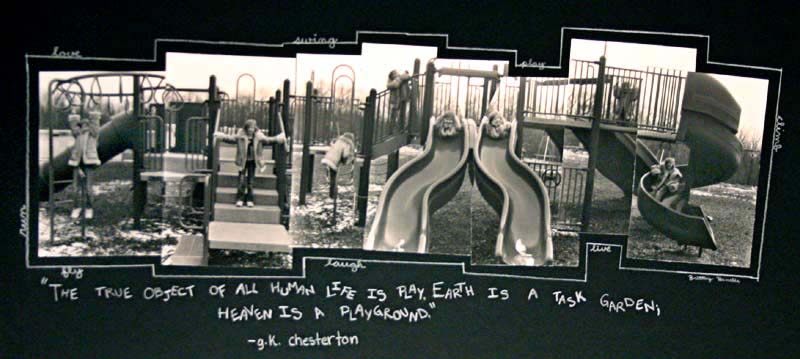 love
swing
play
climb
run
fly
laugh
live
"THE TRUE OBJECT OF ALL HUMAN LIFE IS PLAY. EARTH IS A TASK GARDEN;
HEAVEN IS A PLAYGROUND."
-g.k. chesterton